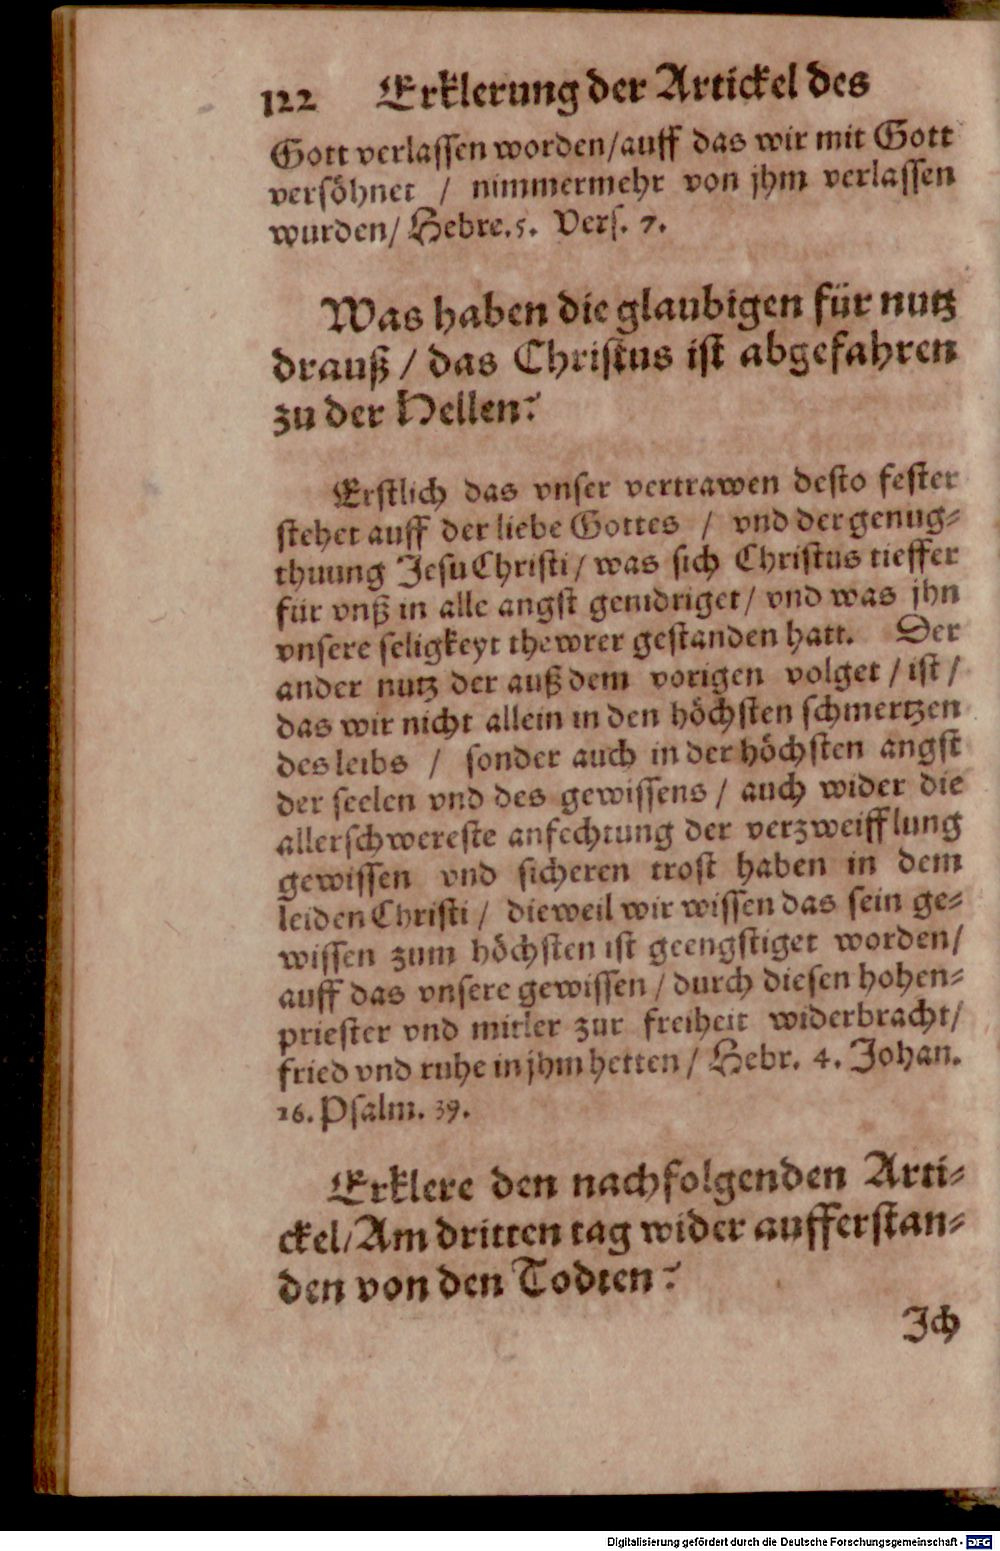 122 Erklerung der Artickel des
Gott verlassen worden/auff das wir mit Gott
versöhnet / nimmermehr von jhm verlassen
wurden/ Hebre.5. Vers. 7.
Was haben die glaubigen für nutz
drauß / das Christus ist abgefahren
zu der Hellen?
Erstlich das vnser vertrawen desto fester
stehet auff der liebe Gottes / vnd der genug-
thuung Jesu Christi / was sich Christus tieffer
für vnß in alle angst genidriget / vnd was jhn
vnsere seligkeyt thewrer gestanden hatt. Der
ander nutz der auß dem vorigen volget / ist /
das wir nicht allein in den höchsten schmertzen
des leibs / sonder auch in der höchsten angst
der seelen vnd des gewissens / auch wider die
allerschwereste anfechtung der verzweifflung
gewissen vnd sicheren trost haben in dem
leiden Christi / dieweil wir wissen das sein ge-
wissen zum höchsten ist geengstiget worden/
auff das vnsere gewissen / durch diesen hohen-
priester vnd mitler zur freiheit widerbracht/
fried vnd ruhe in jhm hetten / Hebr. 4. Johan.
16. Psalm. 39.
Erklere den nachfolgenden Arti-
ckel/Am dritten tag wider aufferstan-
den von den Todten?
Ich
Digitalisierung gefördert durch die Deutsche Forschungsgemeinschaft - DFG